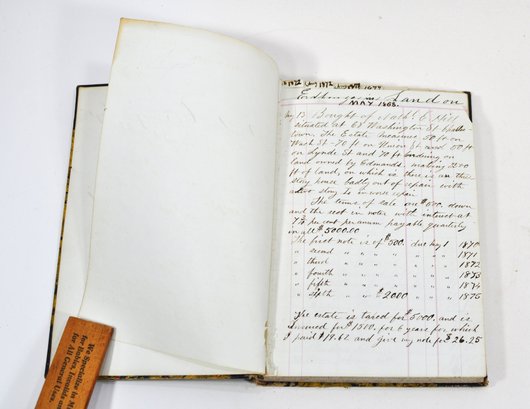 1872 1872 1877
London
MAY 1868.
May 13 Bought of Nathl E
situated at 68 Washington St
town. The Estate measures 50 ft on
Wash St - 70 ft on Union St and 60 ft
on Lynde St and 70 ft on
land owned by Edmands. making 2100
ft of land, on which is there is a three
story house badly out of repair with
a story in worse repair
The terms of sale are $500. down
and the rest in notes with interest at
7 3/10 per cent per annum payable quarterly
in all $5000.00
The first note is of $500. due may 1 1870
" second " " " " " " 1871
" third " " " " " " 1872
" fourth " " " " " " 1873
" fifth " " " " " " 1874
" sixth " " $2000 " " " 1875
The estate is taxed for $5000. and is
insured for $1500. for 6 years for which
I paid $18.62 and give my note for $26.25
We Specialize in
for Babies, Invalids and
for All General Uses.